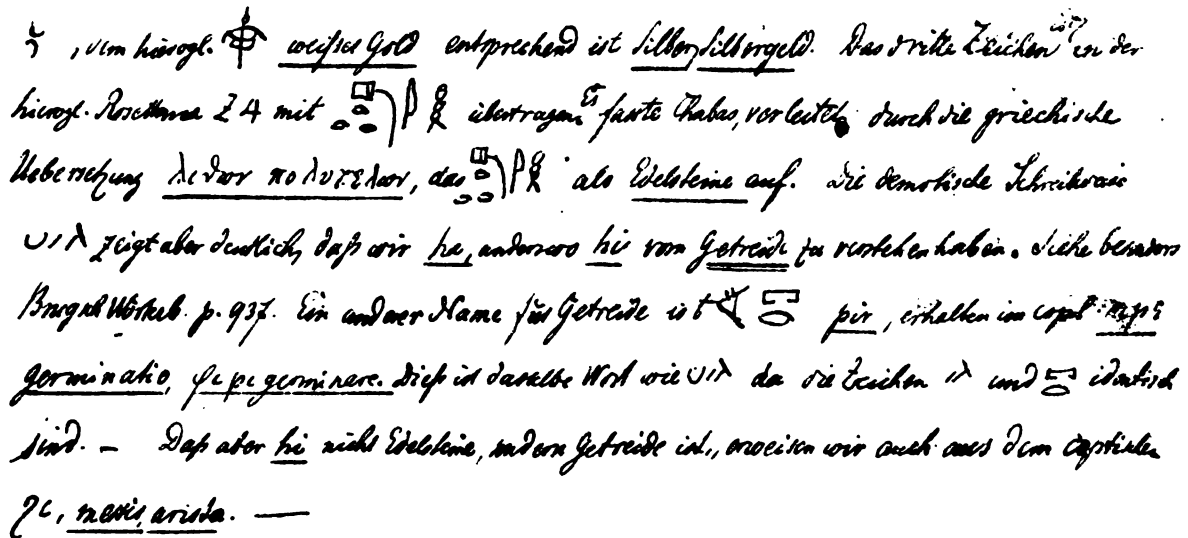 , dem hierogl. weißes Gold entsprechend ist Silber, Silbergeld. Das dritte Zeichen ist in der
hierogl. Rosettana Z 4 mit übertragen. Es faszte Chabas, verleitet durch die griechische
Uebersetzung λιθων πολυτελων, das als Edelsteine auf. Die demotische Schreibweise
zeigt aber deutlich, daß wir ha, anderswo hi vom Getreide zu verstehen haben. Siehe besonders
Brugsch Wörterb. p. 937. Ein anderer Name für Getreide ist pir, erhalten im copt.
germinatio, φιρι germinare. Dieß ist dasselbe Wort wie da die Zeichen und identisch
sind. – Daß aber hi nicht Edelsteine, sondern Getreide ist, erweisen wir auch aus dem coptischen
messis, arista. —